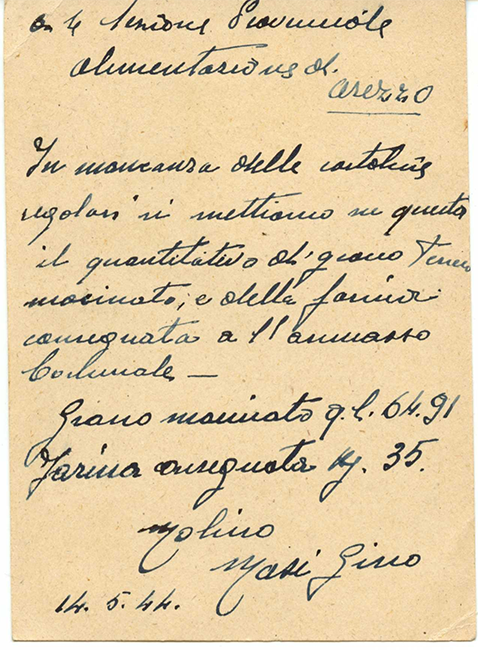 On le Sezione Provinciale
Alimentazione di
Arezzo
In mancanza delle cartoline
regolari si mettiamo in questa
il quantitativo di grano Tenero
macinato, e della farina
consegnata a l'ammasso
Comunale —
Grano macinato q.l. 64.91
Farina consegnata Kg. 35.
Molino
Masi Gino
14. 5. 44.